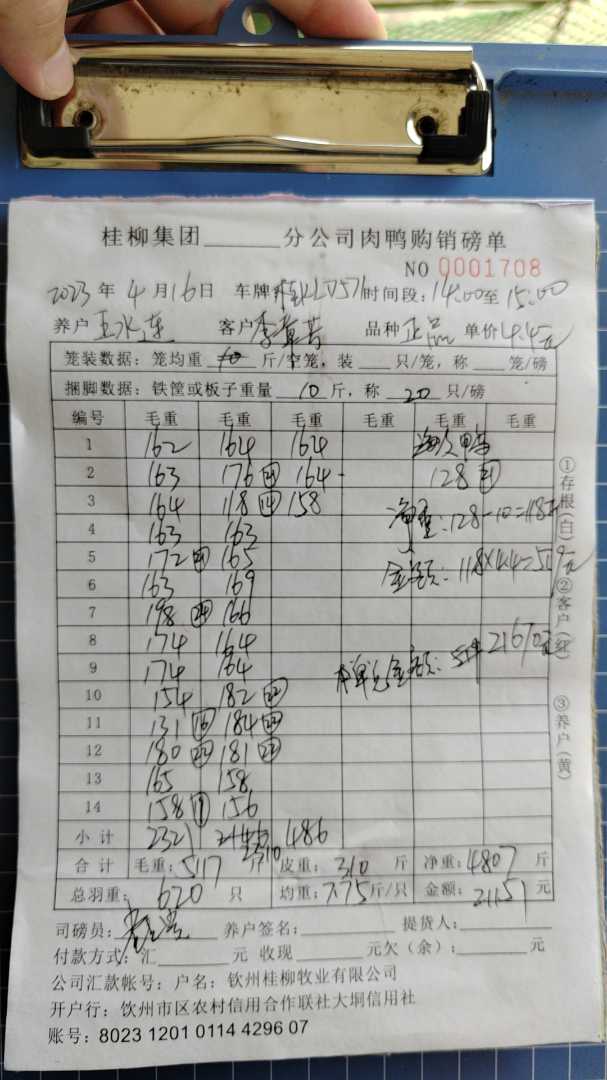 桂柳集团______分公司肉鸭购销磅单
NO 0001708
2023 年 4 月 16 日 车牌 时间段：14.00至 15.00
养户 王水连 客户 李 品种 正品 单价 4.4元
笼装数据：笼均重 斤/空笼，装 ___ 只/笼，称 ___ 笼/磅
捆脚数据：铁筐或板子重量 10 斤，称 20 只/磅
编号 毛重 毛重 毛重 毛重 毛重 毛重
1 162 164 164
2 163 176 164 128 21
3 164 118 14 158 净重：128-10=118斤
4 163 163
5 172 21 165 金额：118×4.4=519元
6 163 169
7 198 24 166
8 174 164
9 174 164 本单总金额： 21670元
10 154 182 22
11 131 16 184
12 180 22 181 22
13 165 158
14 158 156
小计 2321 486
合计 毛重：5117 斤 皮重：310 斤 净重：4807 斤
总羽重：620 只 均重：7.75斤/只 金额：21151 元
司磅员： 养户签名：______ 提货人：______
付款方式：汇______元 收现______元欠（余）：______元
公司汇款帐号：户名：钦州桂柳牧业有限公司
开户行：钦州市区农村信用合作联社大垌信用社
账号：8023 1201 0114 4296 07
①存根（白）②客户（红）③养户（黄）